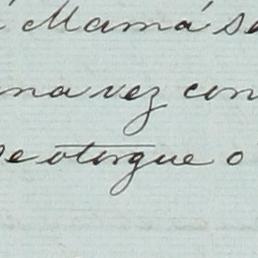 Mamá se
una vez con
se otorgue o